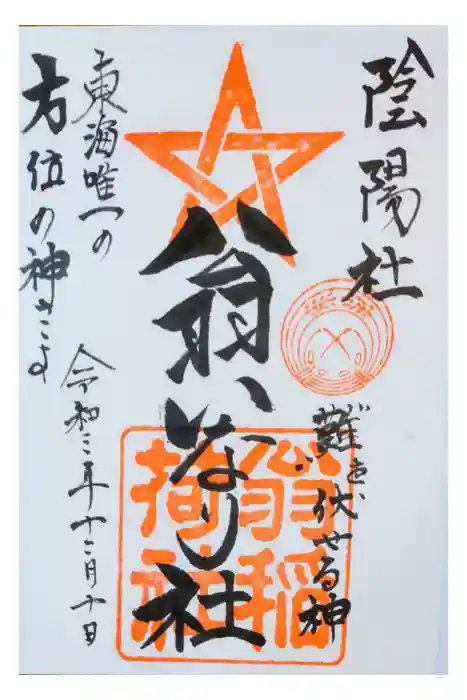 陰陽社
難を伏せる神
翁いなり社
翁稲
荷社
東海唯一の
方位の神さま
令和三年十二月十日